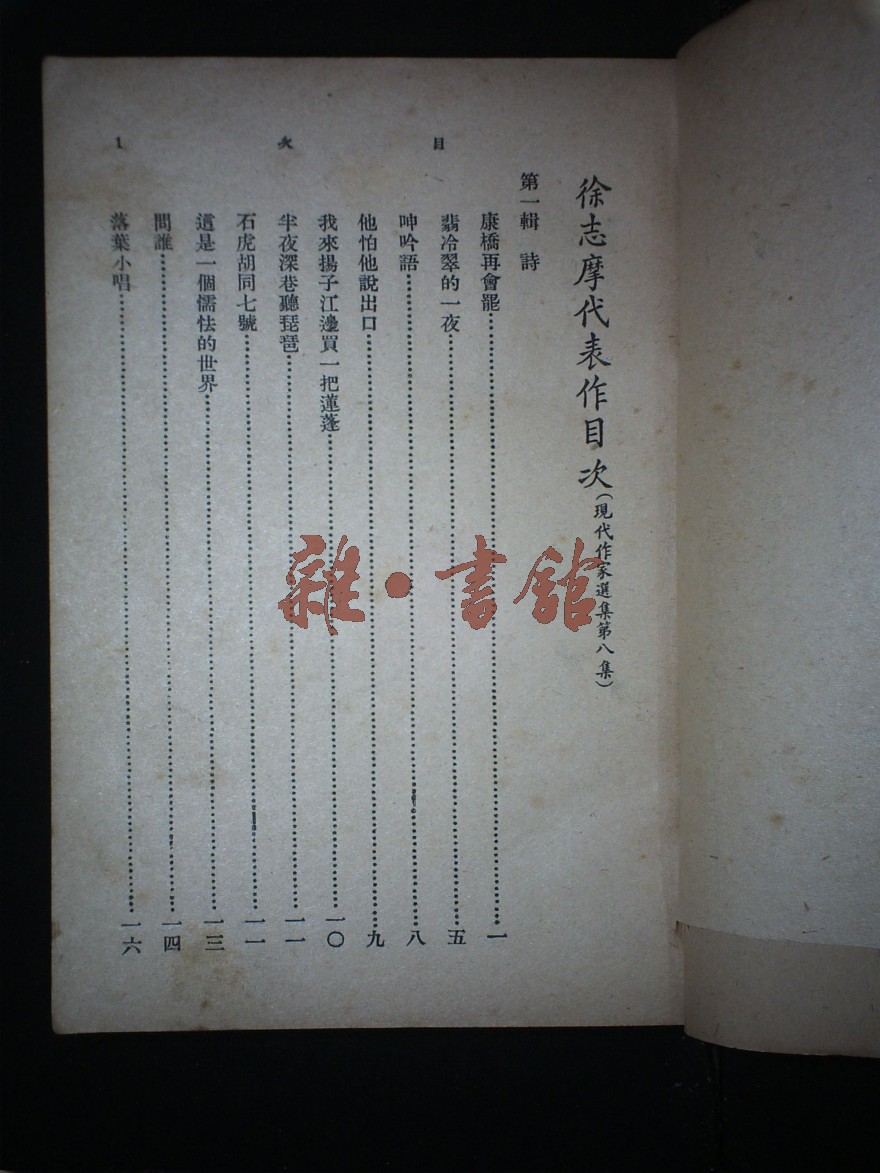 徐志摩代表作目次(現代作家選集第八集)
第一輯 詩
康橋再會罷……一
翡冷翠的一夜……五
呻吟語……八
他怕他說出口……九
我來揚子江邊買一把蓮蓬……一〇
半夜深巷聽琵琶……一一
石虎胡同七號……一一
這是一個懦怯的世界……一三
問誰……一四
落葉小唱……一六
目 次 1
雜·書館